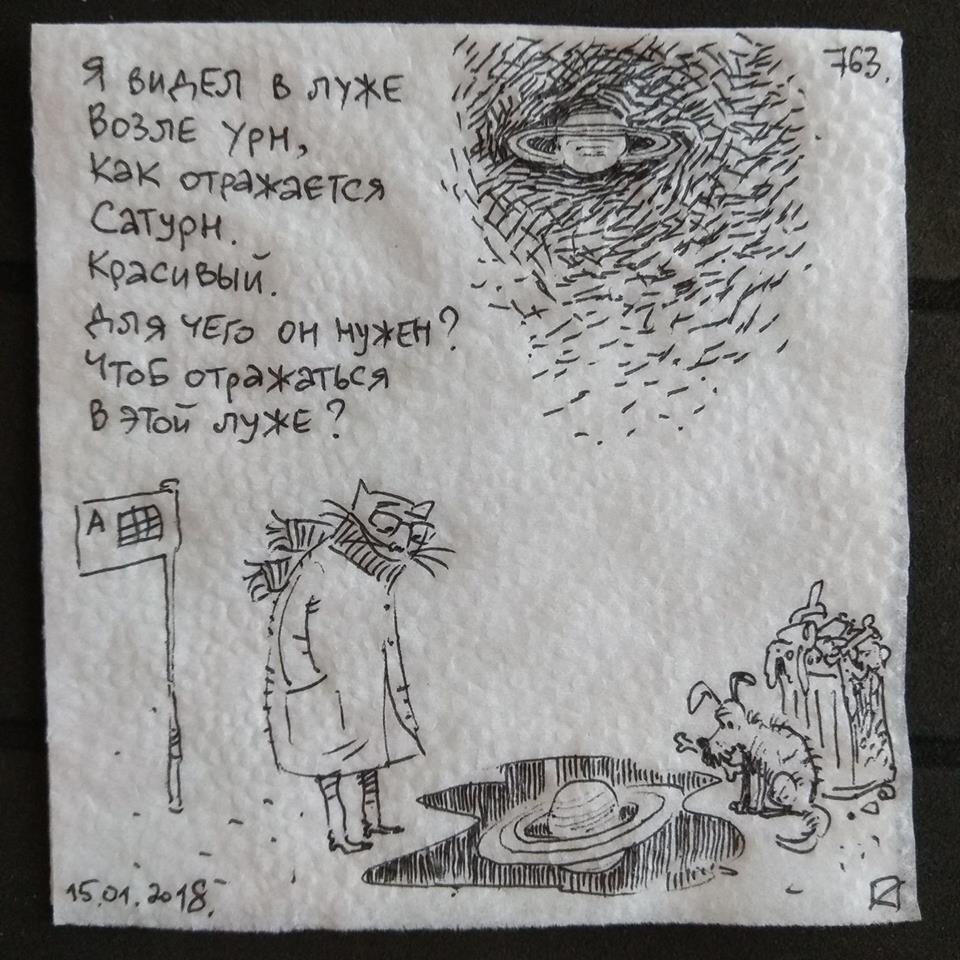 763.
Я видел в луже
Возле урн,
Как отражается
Сатурн.
Красивый.
Для чего он нужен?
Чтоб отражаться
В этой луже?
А
15.01.2018.